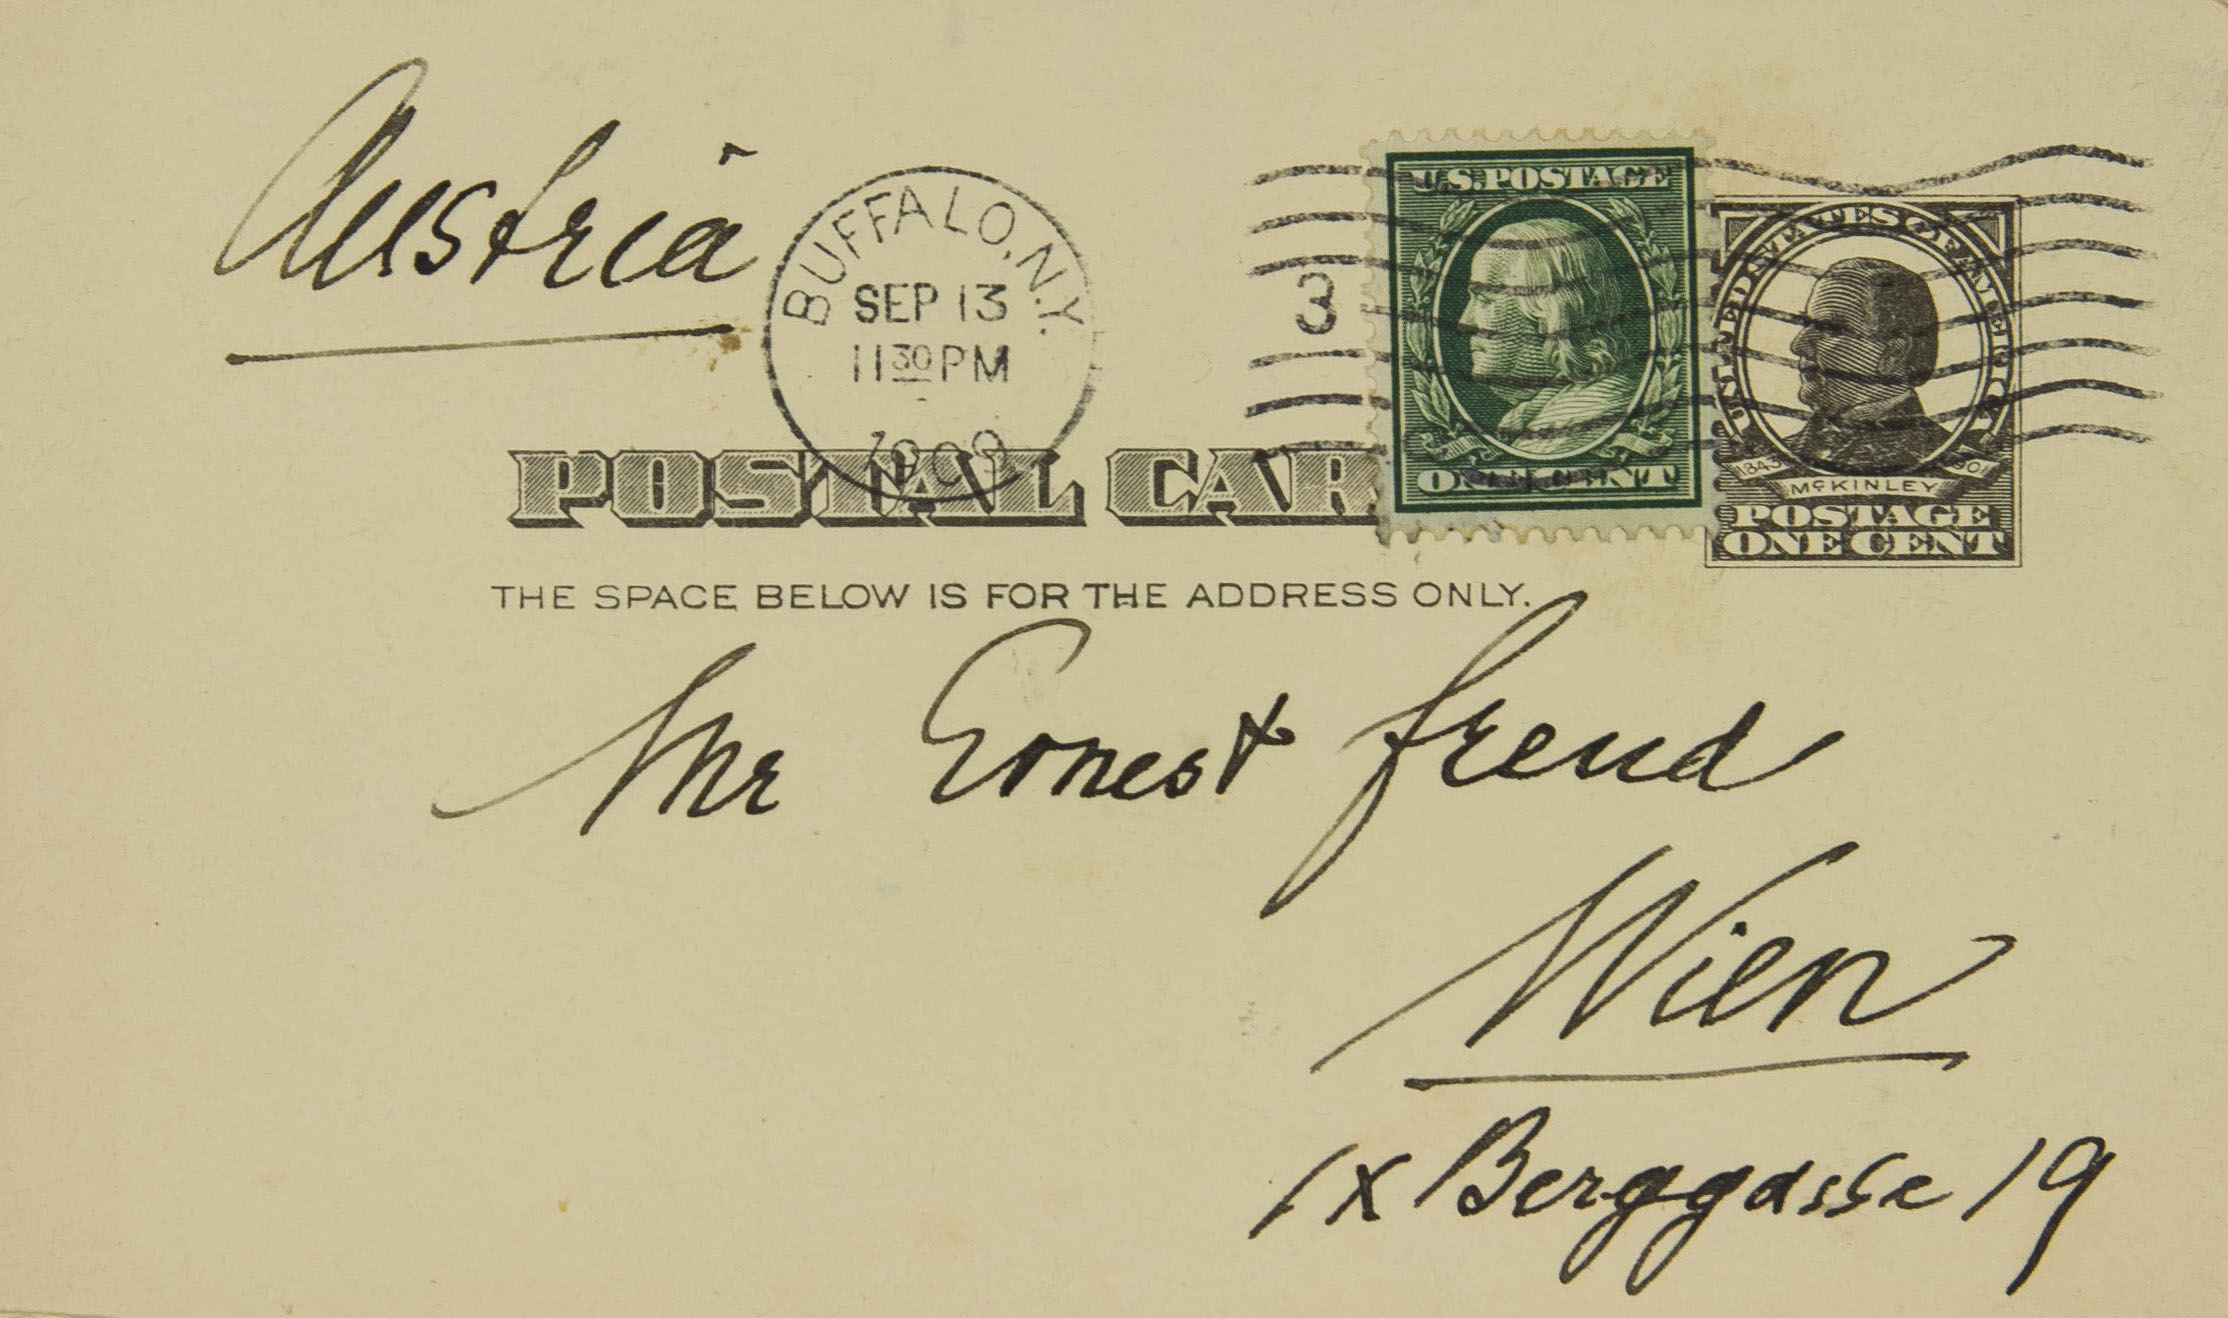 Austria
BUFFALO, N.Y.
SEP 13
11 30 PM
1909
3
U.S. POSTAGE
ONE CENT
UNITED STATES OF AMERICA
1843 1901
McKINLEY
POSTAGE
ONE CENT
POSTAL CAR
THE SPACE BELOW IS FOR THE ADDRESS ONLY.
Mr Ernest Freud
Wien
IX Berggasse 19